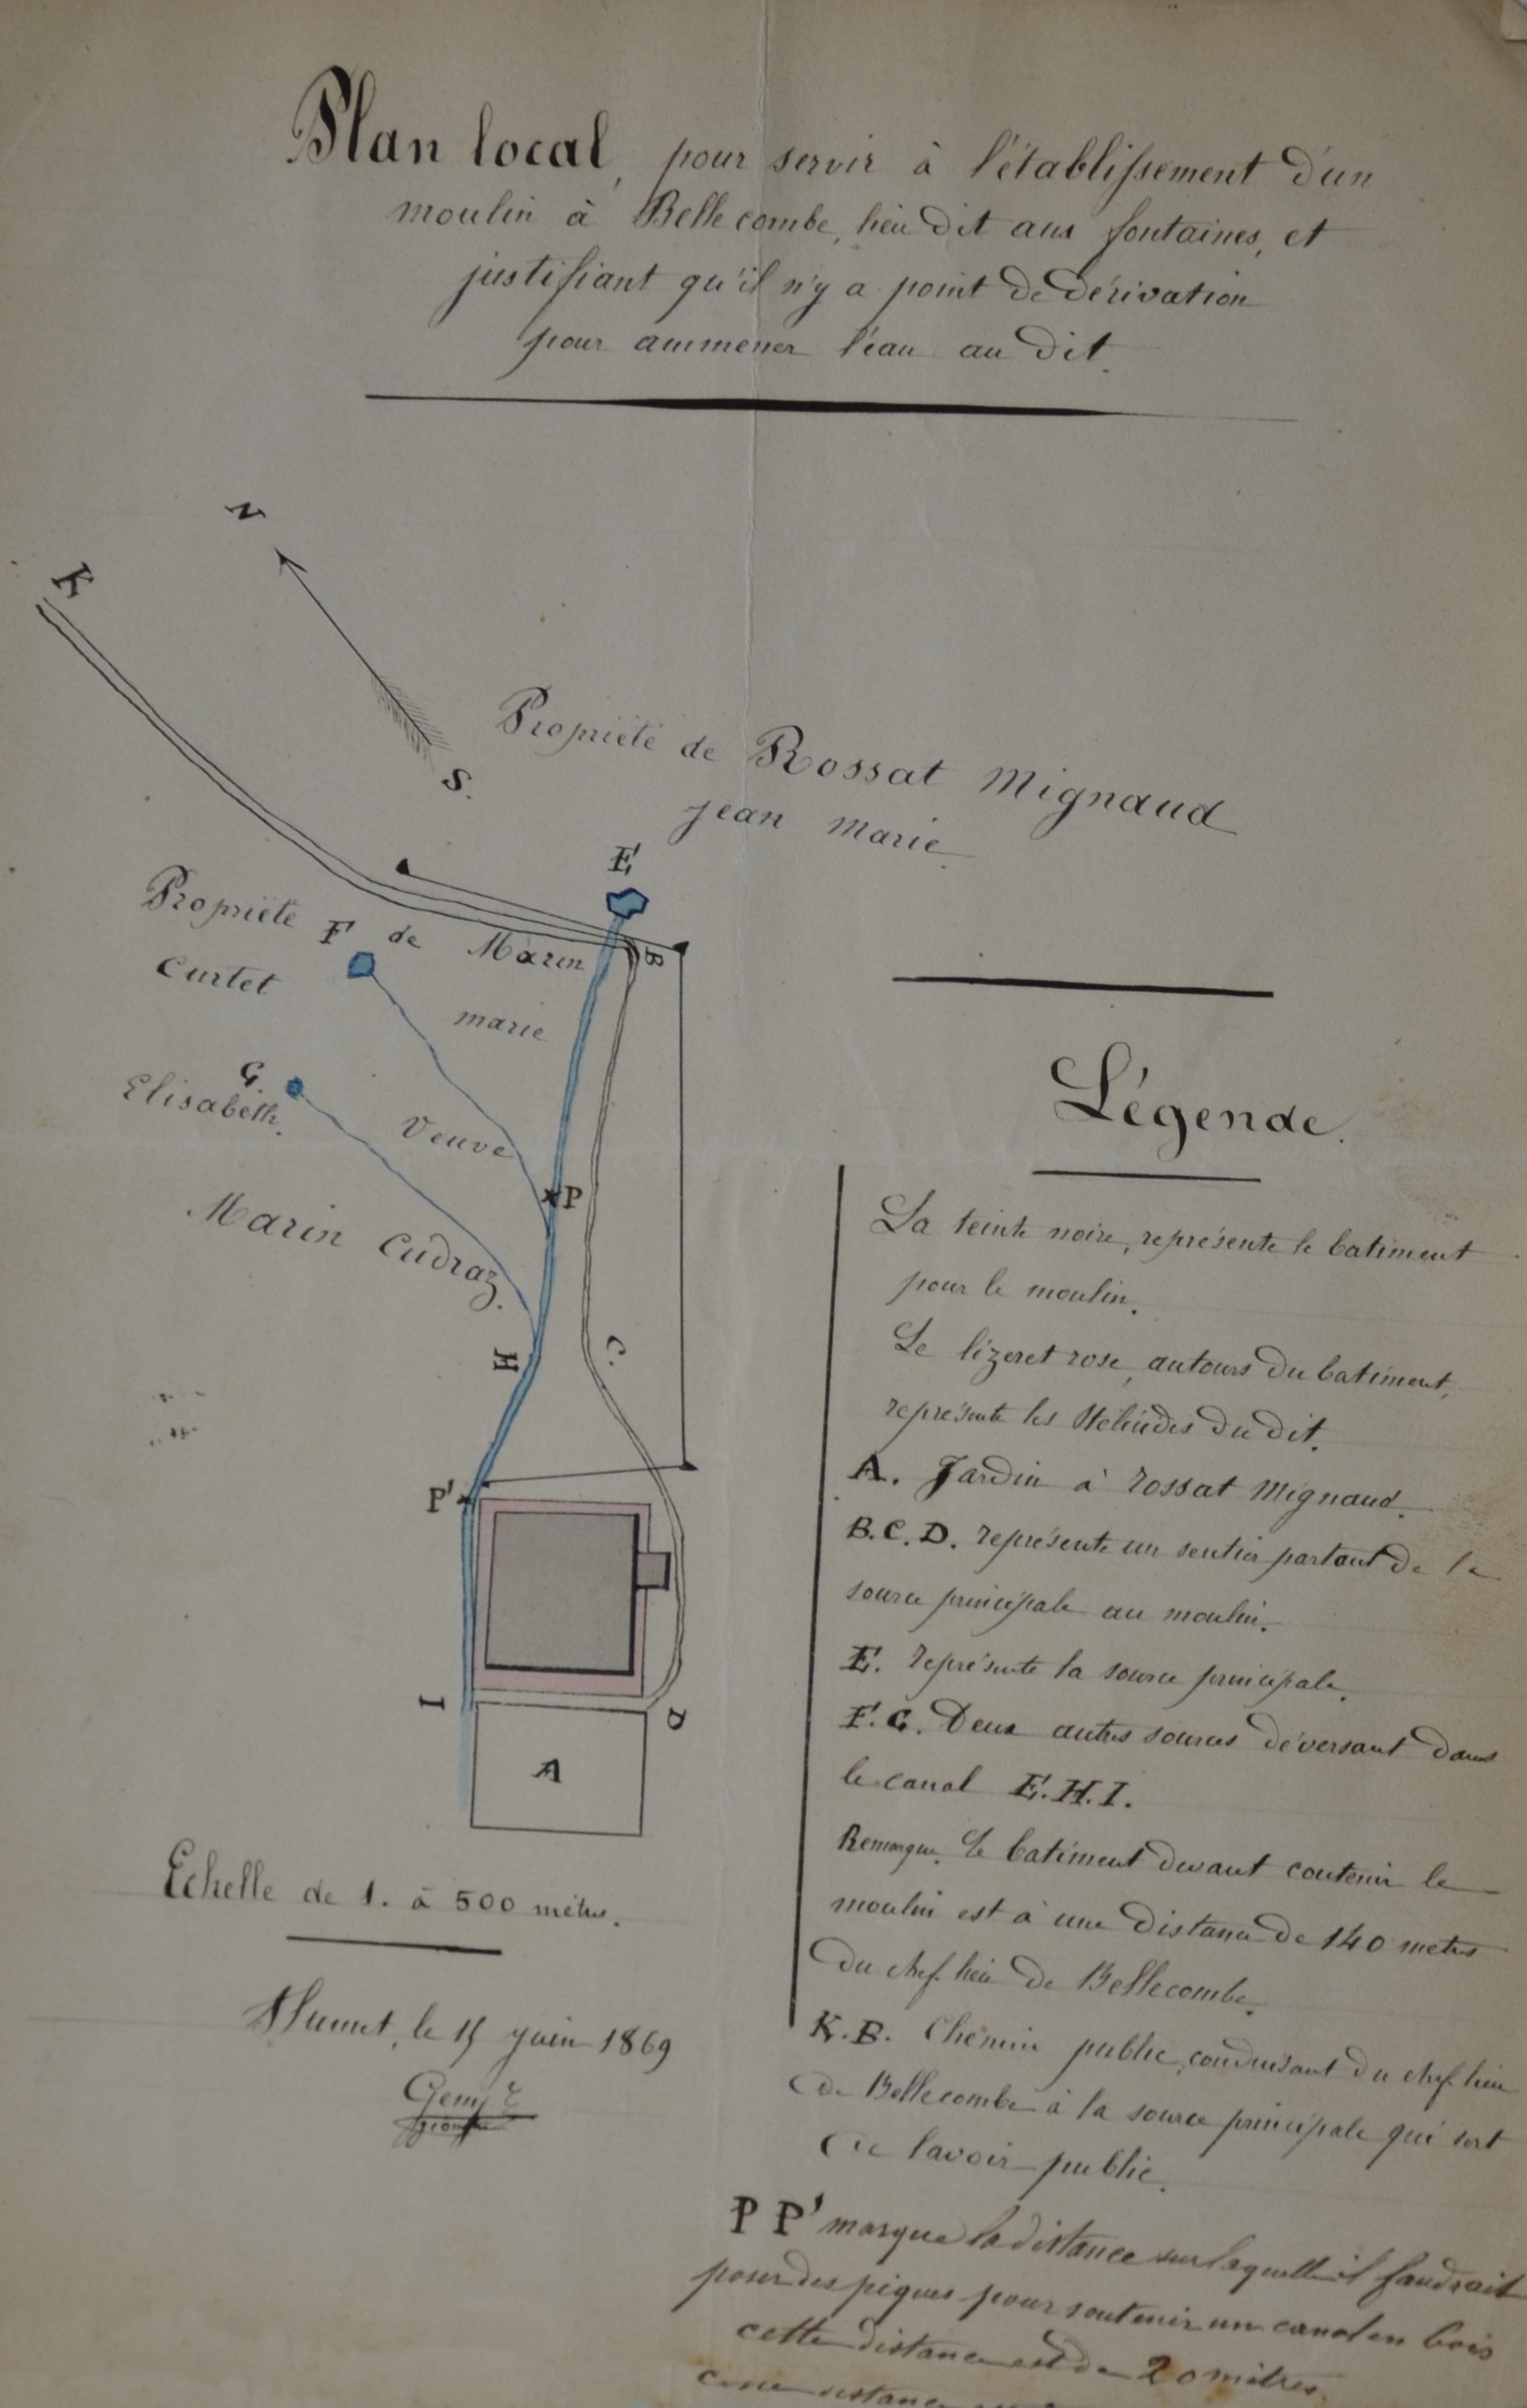 Plan local, pour servir à l'établissement d'un
moulin à Bellecombe, lieu dit aux fontaines, et
justifiant qu'il n'y a point de dérivation
pour ammener l'eau au dit.
N
K
S.
Propriété de Rossat Mignaud
jean marie
E
Propriété F de Marin B
Curtet
marie
G.
Elisabeth.
Veuve
P
Marin Cudraz.
H
C.
P'
I
D
A
Echelle de 1. à 500 mètres.
le 15 juin 1869
Légende.
La teinte noire, représente le batiment
pour le moulin.
Le lizeret rose, autours du batiment,
représente les du dit.
A. Jardin à rossat Mignaud.
B.C.D. représente un sentier partant de la
source principale au moulin.
E. représente la source principale.
F.G. Deux autres sources déversant dans
le canal E.H.I.
Remarque. Le batiment devant contenir le
moulin est à une distance de 140 metres
du chef-lieu de Bellecombe.
K.B. Chemin public, conduisant du chef-lieu
de Bellecombe à la source principale qui sert
de lavoir public.
P P' marque la distance sur laquelle il faudrait
poser des piques pour soutenir un canal en bois
cette distance est de 20 mètres